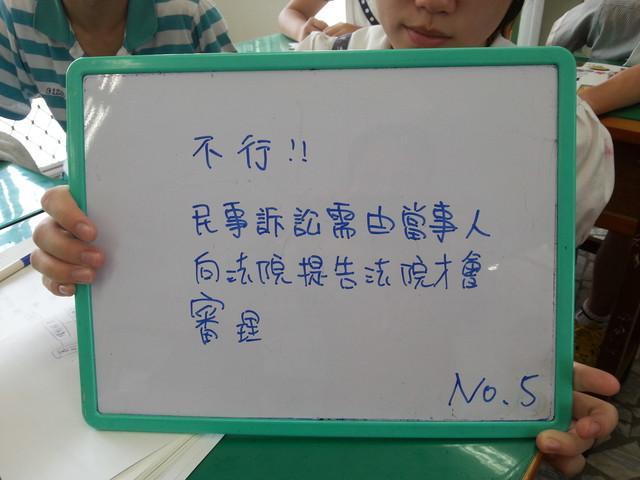 不行!!
民事訴訟需由當事人
向法院提告法院才會
審理
No.5